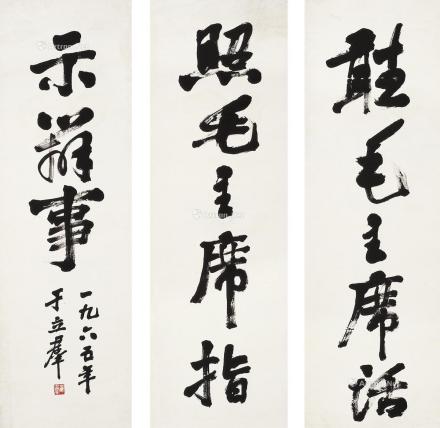 聽毛主席話
照毛主席指
示辦事
一九六五年
于立群